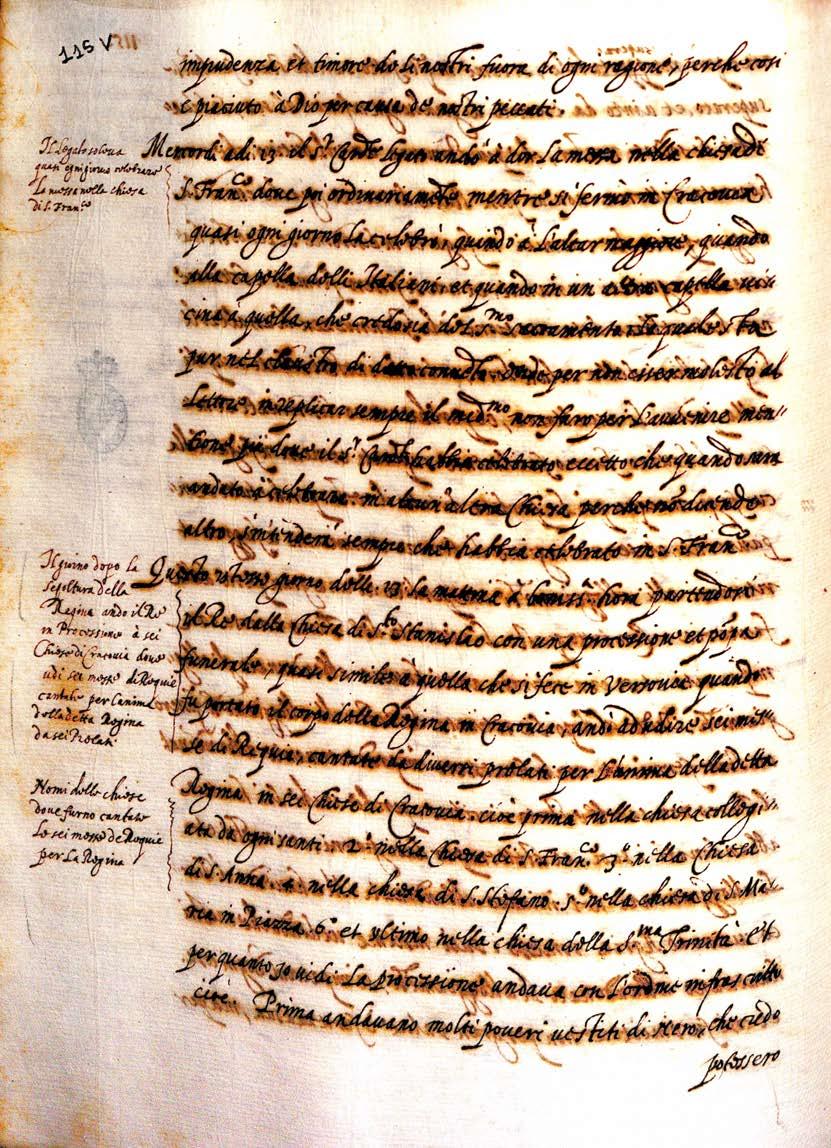 115 V
impudenza et timore de li nostri fuora di ogni ragione, perche cosi
è piaciuto à Dio per causa de nostri peccati.
Il Legato soleua
quasi ogni giorno celebrare
La messa nella chiesa
di S. Fran.co
Mercordi adi 13 il S.r Card.le legato andò à dir La messa nella chiesa di
S. Fran.co doue poi ordinariam.te mentre si fermò in Cracouia
quasi ogni giorno La celebrò, quando à L'altar maggiore, quando
alla capella delli Italiani, et quando in un altra capella ui=
cina à quella, che credo sia del S.mo Sacramento La quale sta
pur nel claustro di detto conuento. Onde per non esser molesto al
Lettore, in replicar sempre il med.mo non farò per L'auuenire men=
tione più doue il S.r Card.le habbia celebrato eccetto che quando sarà
andato à celebrare in alcun'altra Chiesa perche nō dicendo
altro, s'intenderà sempre che habbia celebrato in S. Fran.co
Il giorno dopo la
sepoltura della
Regina andò il Re
in Processione à sei
Chiese di Cracouia doue
udì sei messe di Requie
cantate per l'anima
della detta Regina
da sei Prelati
Questo istesso giorno delle 13 la matina à boniss.a hora partendosi
il Re dalla Chiesa di S.to Stanislao con una processione et pōpa
funerale, quasi simile à quella che si fece in quando
fu portato il corpo della Regina in Cracouia, andò ad udire sei mis=
se di Requia, cantate da diuersi prelati per L'anima della detta
Nomi delle chiese
doue furno cantate
Le sei messe de Requie
per La Regina
Regina in sei Chiese di Cracouia. cioè prima nella chiesa collegi=
ata da ogni santi. 2.a nella Chiesa di S. Fran.co 3.a nella Chiesa
di S. Anna. 4. nella chiesa di S. Stefano. 5.a nella chiesa di S. Ma=
ria in Piazza. 6.a et ultimo nella chiesa della S.ma Trinità. Et
per quanto io uidi La processione andaua con L'ordine infrascritto
cioè. Prima andauano molti poueri uestiti di nero, che credo
potessero